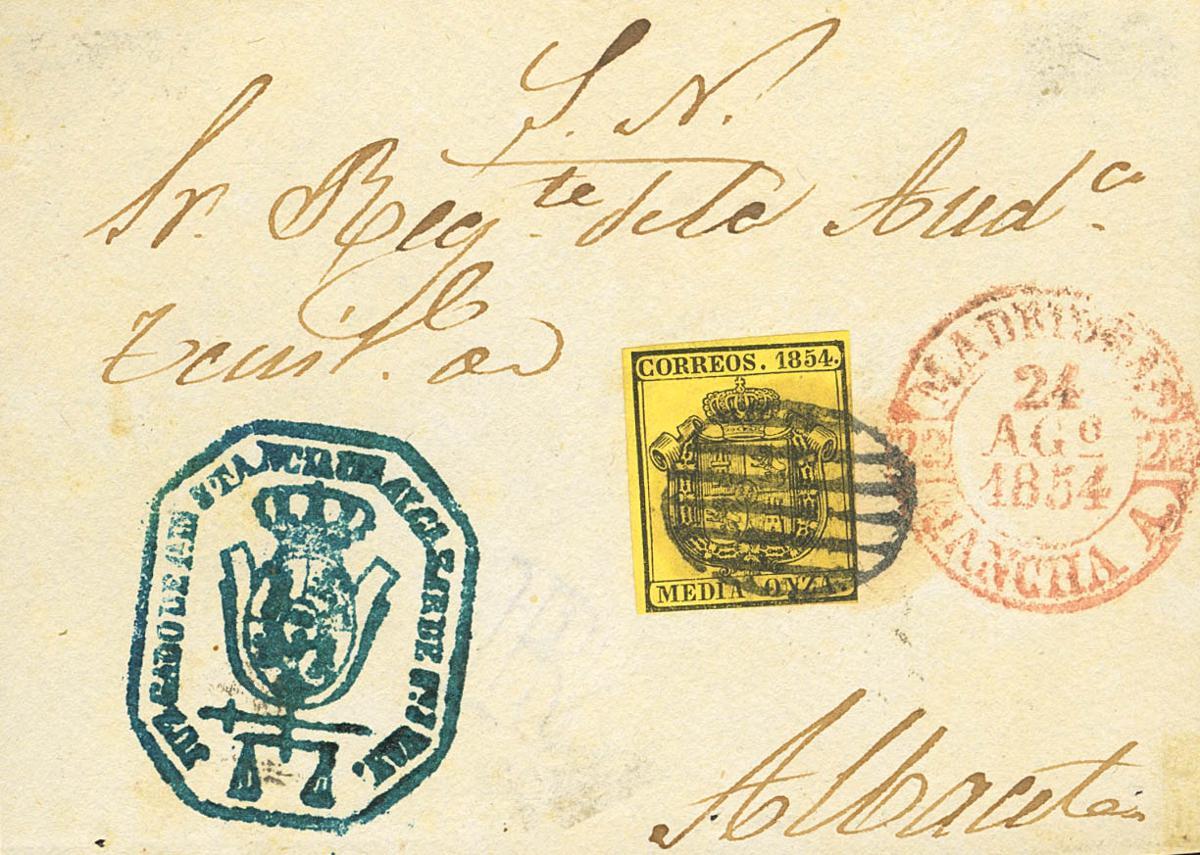 S. N.
Sr. Reg.te de la Aud.a
Territ. de
CORREOS. 1854.
MEDIA ONZA.
MADRID
24
AGº
1854
MANCHA A.
JUZGADO DE 1ª INSTANCIA DE ALCAZAR DE S. JUAN.
Albacete